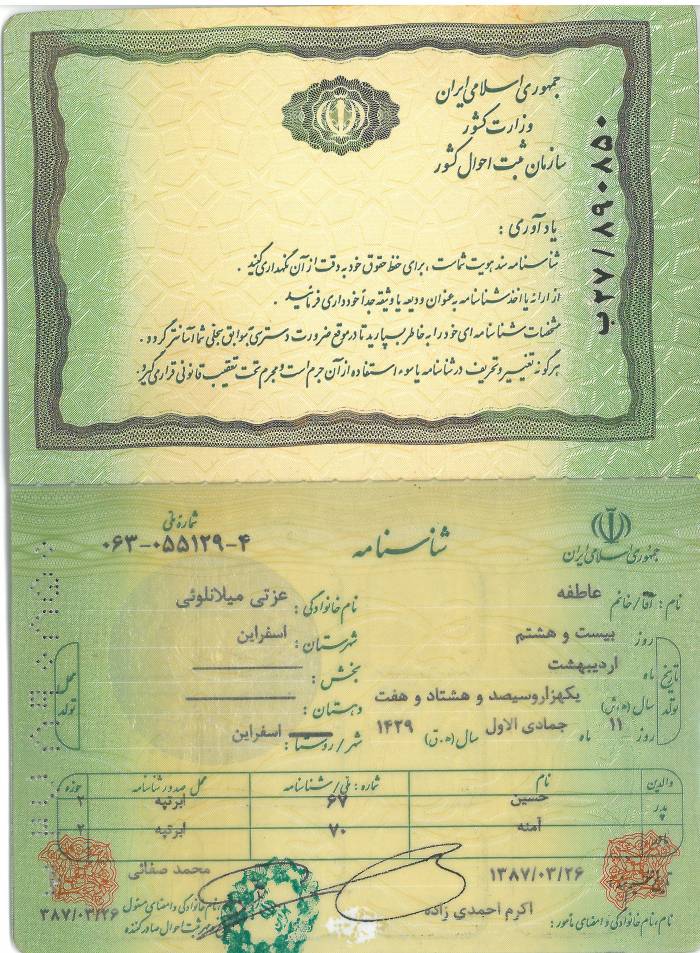 جمهوری اسلامی ایران
وزارت کشور
سازمان ثبت احوال کشور
ب ۲۷/۸۹۰۸۵۰
یادآوری :
شناسنامه سند هویت شماست ، برای حفظ حقوق خود به دقت از آن نگهداری کنید .
از ارائه یا اخذ شناسنامه به عنوان ودیعه یا وثیقه جداً خودداری فرمائید .
مشخصات شناسنامه ای خود را به خاطر بسپارید تا در موقع ضرورت دسترسی به سوابق سجلی شما آسانتر گردد .
هرگونه تغییر و تحریف در شناسنامه یا سوء استفاده از آن جرم است و مجرم تحت تعقیب قانونی قرار می گیرد .
جمهوری اسلامی ایران
شناسنامه
شماره ملی
۰۶۳-۰۵۵۱۲۹-۴
نام : آقا/خانم عاطفه
نام خانوادگی : عزتی میلانلوئی
تاریخ تولد
روز بیست و هشتم
ماه اردیبهشت
سال (ه.ش) یکهزاروسیصد و هشتاد و هفت
روز ۱۱ ماه جمادی الاول سال (ه.ق) ۱۴۲۹
محل تولد
شهرستان : اسفراین
بخش :
دهستان :
شهر/روستا : اسفراین
والدین نام شماره : ملی/شناسنامه محل صدور شناسنامه حوزه
پدر حسین ۶۷ ابرتپه ۲
مادر آمنه ۷۰ ابرتپه ۲
۱۳۸۷/۰۳/۲۶
محمد صفائی
نام،نام خانوادگی و امضای مأمور : اکرم احمدی زاده
نام خانوادگی و امضای مسئول
ثبت احوال صادرکننده
۳۸۷/۰۳/۲۶